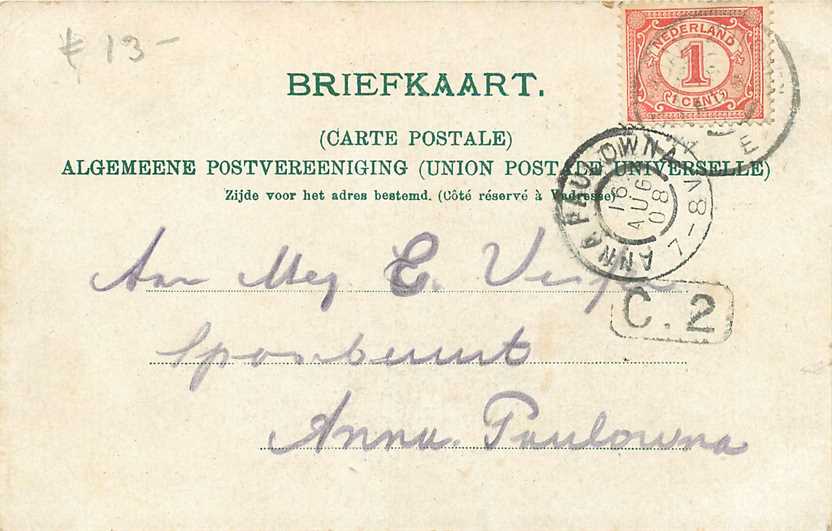 ƒ 13-
NEDERLAND
1
1 CENT
BRIEFKAART.
(CARTE POSTALE)
ALGEMEENE POSTVEREENIGING (UNION POSTALE UNIVERSELLE)
Zijde voor het adres bestemd. (Côté réservé à l'adresse)
ANNA PAULOWNA
16
AUG
08
7-8V
Aan Mej E.
C.2
Spoorbuurt
Anna Paulowna